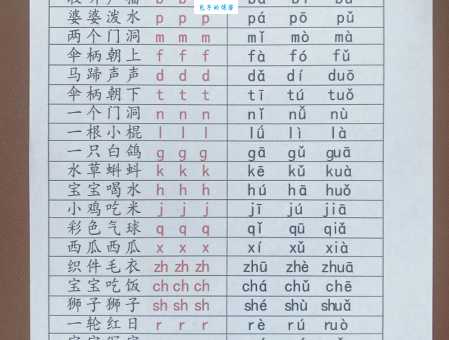 婆婆泼水 p p p pá pō pǔ
两个门洞 m m m mǐ mò mà
伞柄朝上 f f f fà fó fǔ
马蹄声声 d d d dǎ dí duō
伞柄朝下 t t t tī tú tuǒ
一个门洞 n n n nǐ nǚ nù
一根小棍 l l l lǘ lì là
一只白鸽 g g g gā gǔ guā
水草蝌蚪 k k k kē kǔ kuà
宝宝喝水 h h h hú hā huǒ
小鸡吃米 j j j jī jú jiā
彩色气球 q q q qǐ qū qiǎ
西瓜西瓜 x x x xí xǔ xià
织件毛衣 zh zh zh zhū zhè zhuā
宝宝吃饭 ch ch ch chá chǔ chē
狮子狮子 sh sh sh shé shù shuǎ
一轮红日 r r r rè rú ruò